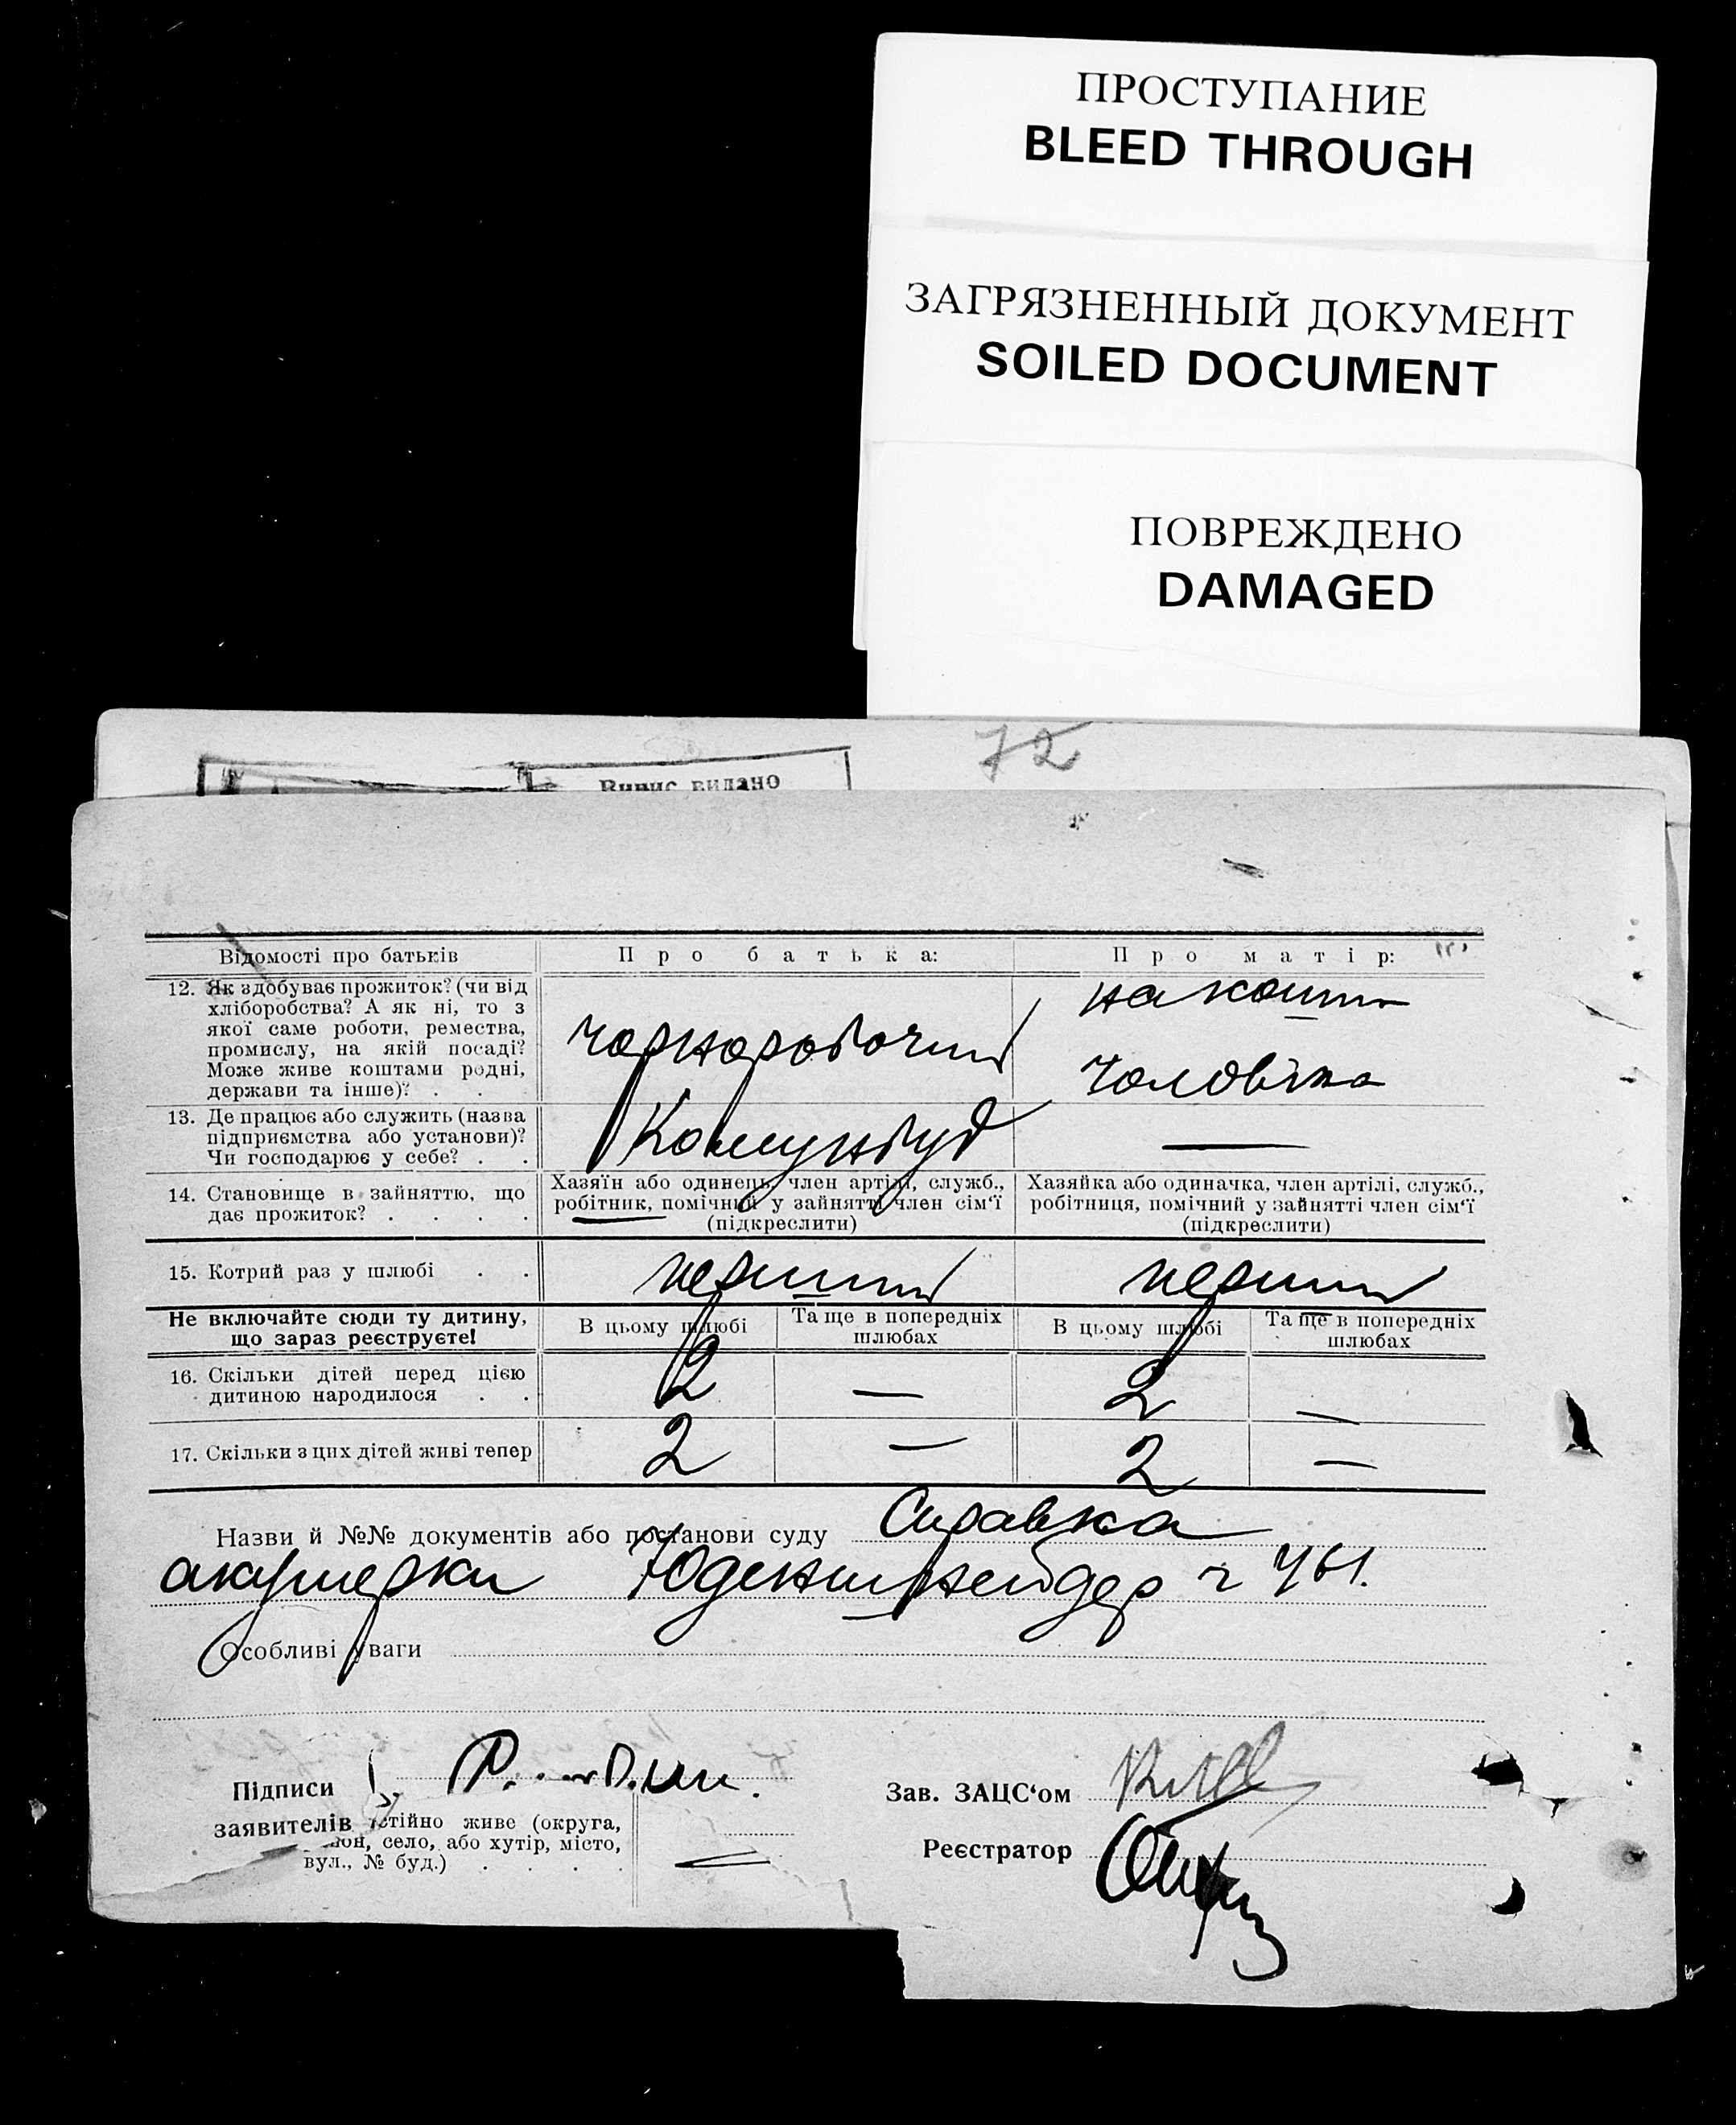 ПРОСТУПАНИЕ
BLEED THROUGH
ЗАГРЯЗНЕННЫЙ ДОКУМЕНТ
SOILED DOCUMENT
ПОВРЕЖДЕНО
DAMAGED
72
Випис видано
Відомості про батьків
Про батька:
Про матір:
12. Як здобуває прожиток? (чи від
хліборобства? А як ні, то з
якої саме роботи, ремества,
промислу, на якій посаді?
Може живе коштами родні,
держави та інше)? .
чорноробочий
на кошти
чоловіка
13. Де працює або служить (назва
підприємства або установи)?
Чи господарює у себе? . .
Комунбуд
—
14. Становище в зайняттю, що
дає прожиток? . . . .
Хазяїн або одинець, член артілі, служб.,
робітник, помічний у зайнятті член сім'ї
(підкреслити)
Хазяйка або одиначка, член артілі, служб.,
робітниця, помічний у зайнятті член сім'ї
(підкреслити)
15. Котрий раз у шлюбі . .
перший
перший
Не включайте сюди ту дитину,
що зараз реєструєте!
В цьому шлюбі
Та ще в попередніх
шлюбах
В цьому шлюбі
Та ще в попередніх
шлюбах
16. Скільки дітей перед цією
дитиною народилося . .
2 — 2 —
17. Скільки з цих дітей живі тепер
2 — 2 —
Назви й №№ документів або постанови суду Справка
акушерки Юденшнейдер ч 461.
Особливі уваги
Підписи
заявителів
тійно живе (округа,
он, село, або хутір, місто,
вул., № буд.) . . . .
Зав. ЗАЦС'ом
Реєстратор